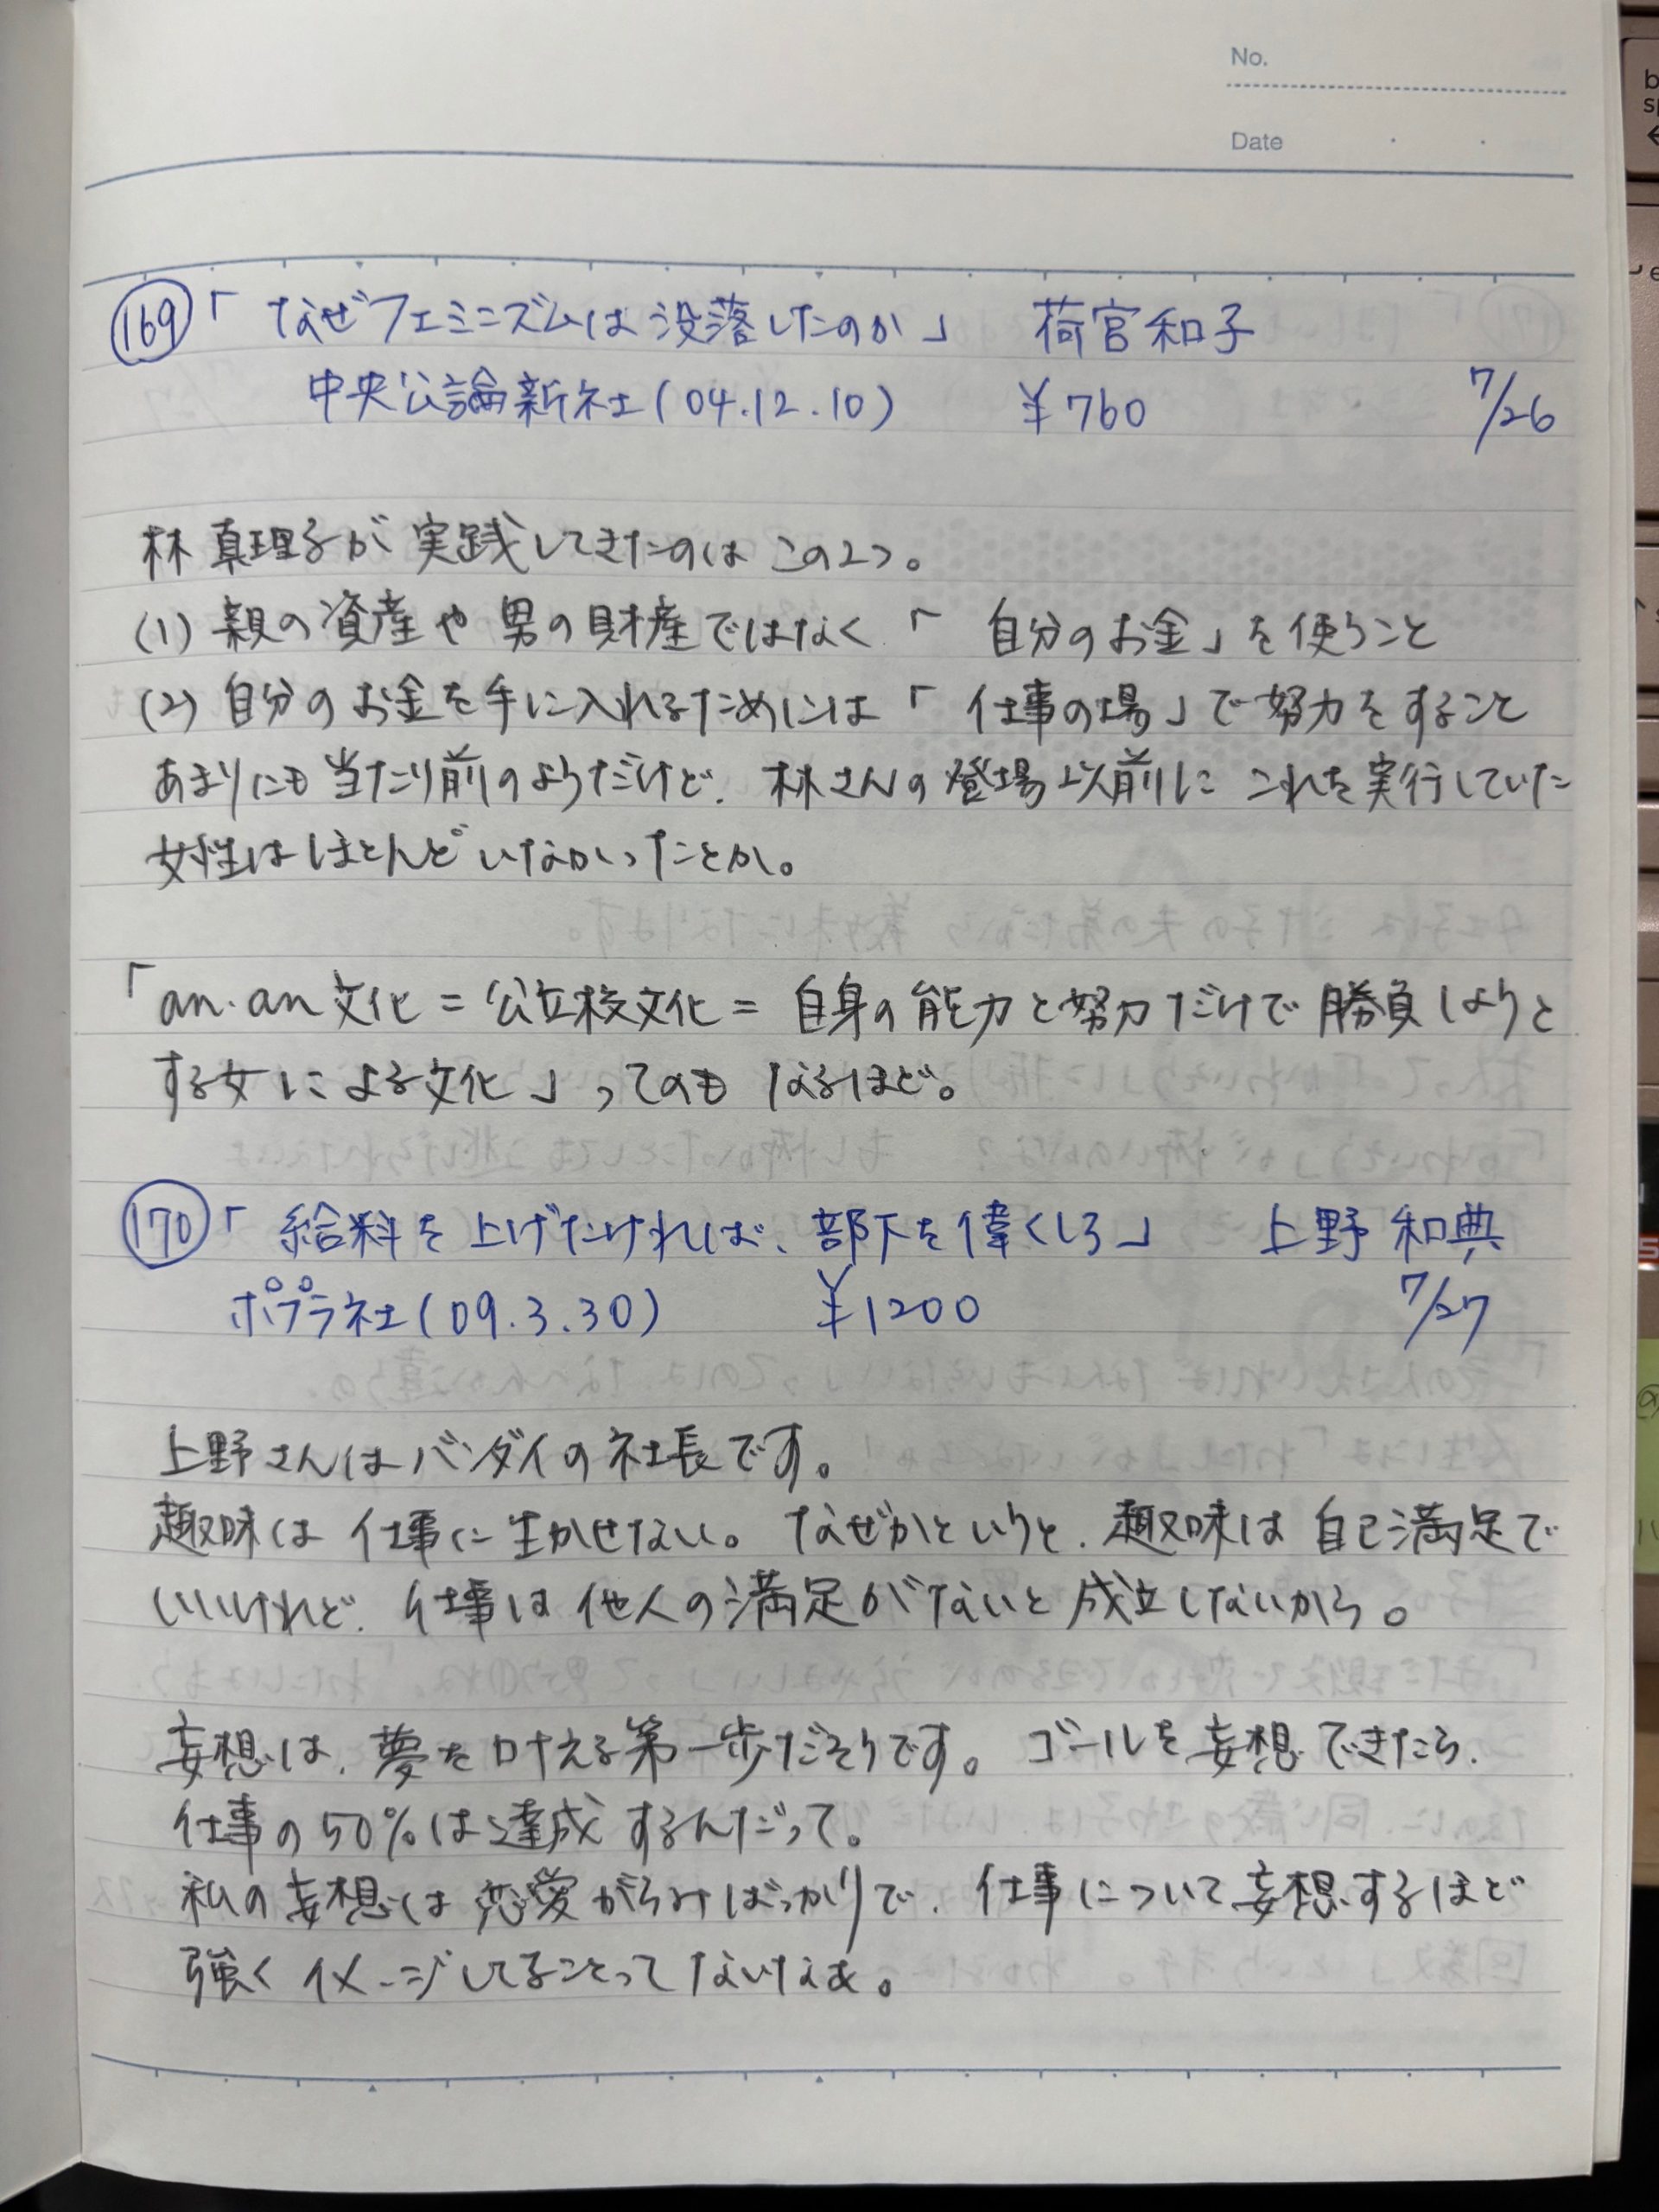 No.
Date
169 「なぜフェミニズムは没落したのか」 荷宮和子
中央公論新社(04.12.10) ¥760 7/26
林真理子が実践してきたのはこの2つ。
(1) 親の資産や男の財産ではなく「自分のお金」を使うこと
(2) 自分のお金を手に入れるためには「仕事の場」で努力をすること
あまりにも当たり前のようだけど、林さんの登場以前にこれを実行していた
女性はほとんどいなかったことか。
「an・an文化=公立校文化=自身の能力と努力だけで勝負しようと
する女による文化」ってのもなるほど。
170 「給料を上げたければ、部下を偉くしろ」 上野和典
ポプラ社(09.3.30) ¥1200 7/27
上野さんはバンダイの社長です。
趣味は仕事に生かせない。なぜかというと、趣味は自己満足で
いいけれど、仕事は他人の満足がないと成立しないから。
妄想は、夢を叶える第一歩だそうです。ゴールを妄想できたら、
仕事の50%は達成するんだって。
私の妄想は恋愛がらみばっかりで、仕事について妄想するほど
強くイメージしてることってないなぁ。